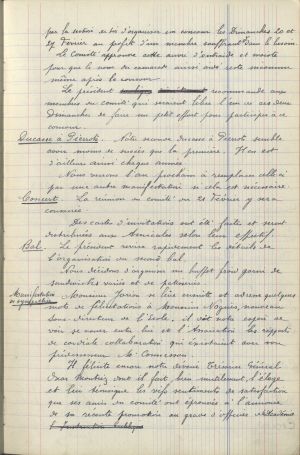 par la section se vit d'organiser un concours les Dimanches 20 et
27 Février au profit d'un membre souffrant dans le besoin.
Le Comité approuve cette œuvre d'entraide et insiste
pour que le nom du camarade aussi aidé reste inconnu
même après le concours.
Le président recommande aux
membres du comité qui seraient libres l'un ou ces deux
dimanches de faire un petit effort pour participer à ce
concours.
Ducasse à Pierrots. Notre seconde ducasse à Pierrots semble
avoir moins de succès que la première. Il en est
d'ailleurs ainsi chaque année.
Nous verrons l'an prochain à remplacer celle-ci
par une autre manifestation si cela est nécessaire.
Concert. La réunion du comité du 21 Février y sera
consacrée.
Des cartes d'invitations ont été faites et seront
distribuées aux Amicales selon leur effectif.
Bal. Le président revise rapidement les détails de
l'organisation du second bal.
Nous décidons d'organiser un buffet froid garni de
sandwiches variés et de patisseries.
Manifestation
de sympathie Monsieur se lève ensuite et adresse quelques
mots de félicitations à Monsieur Noguès, nouveau
Sous-directeur de l'Ecole; il dit notre espoir de
voir se nouer entre lui et l'Association les rapports
de cordiale collaboration qui existaient avec son
prédécesseur Mr Connesson.
Il félicite encore notre dévoué Trésorier Général
Omer dont il fait, bien inutilement, l'éloge
et lui témoigne les vifs sentiments de satisfaction
que ses amis du comité ont éprouvés à l'annonce
de sa récente promotion au grade d'officier d'Académie